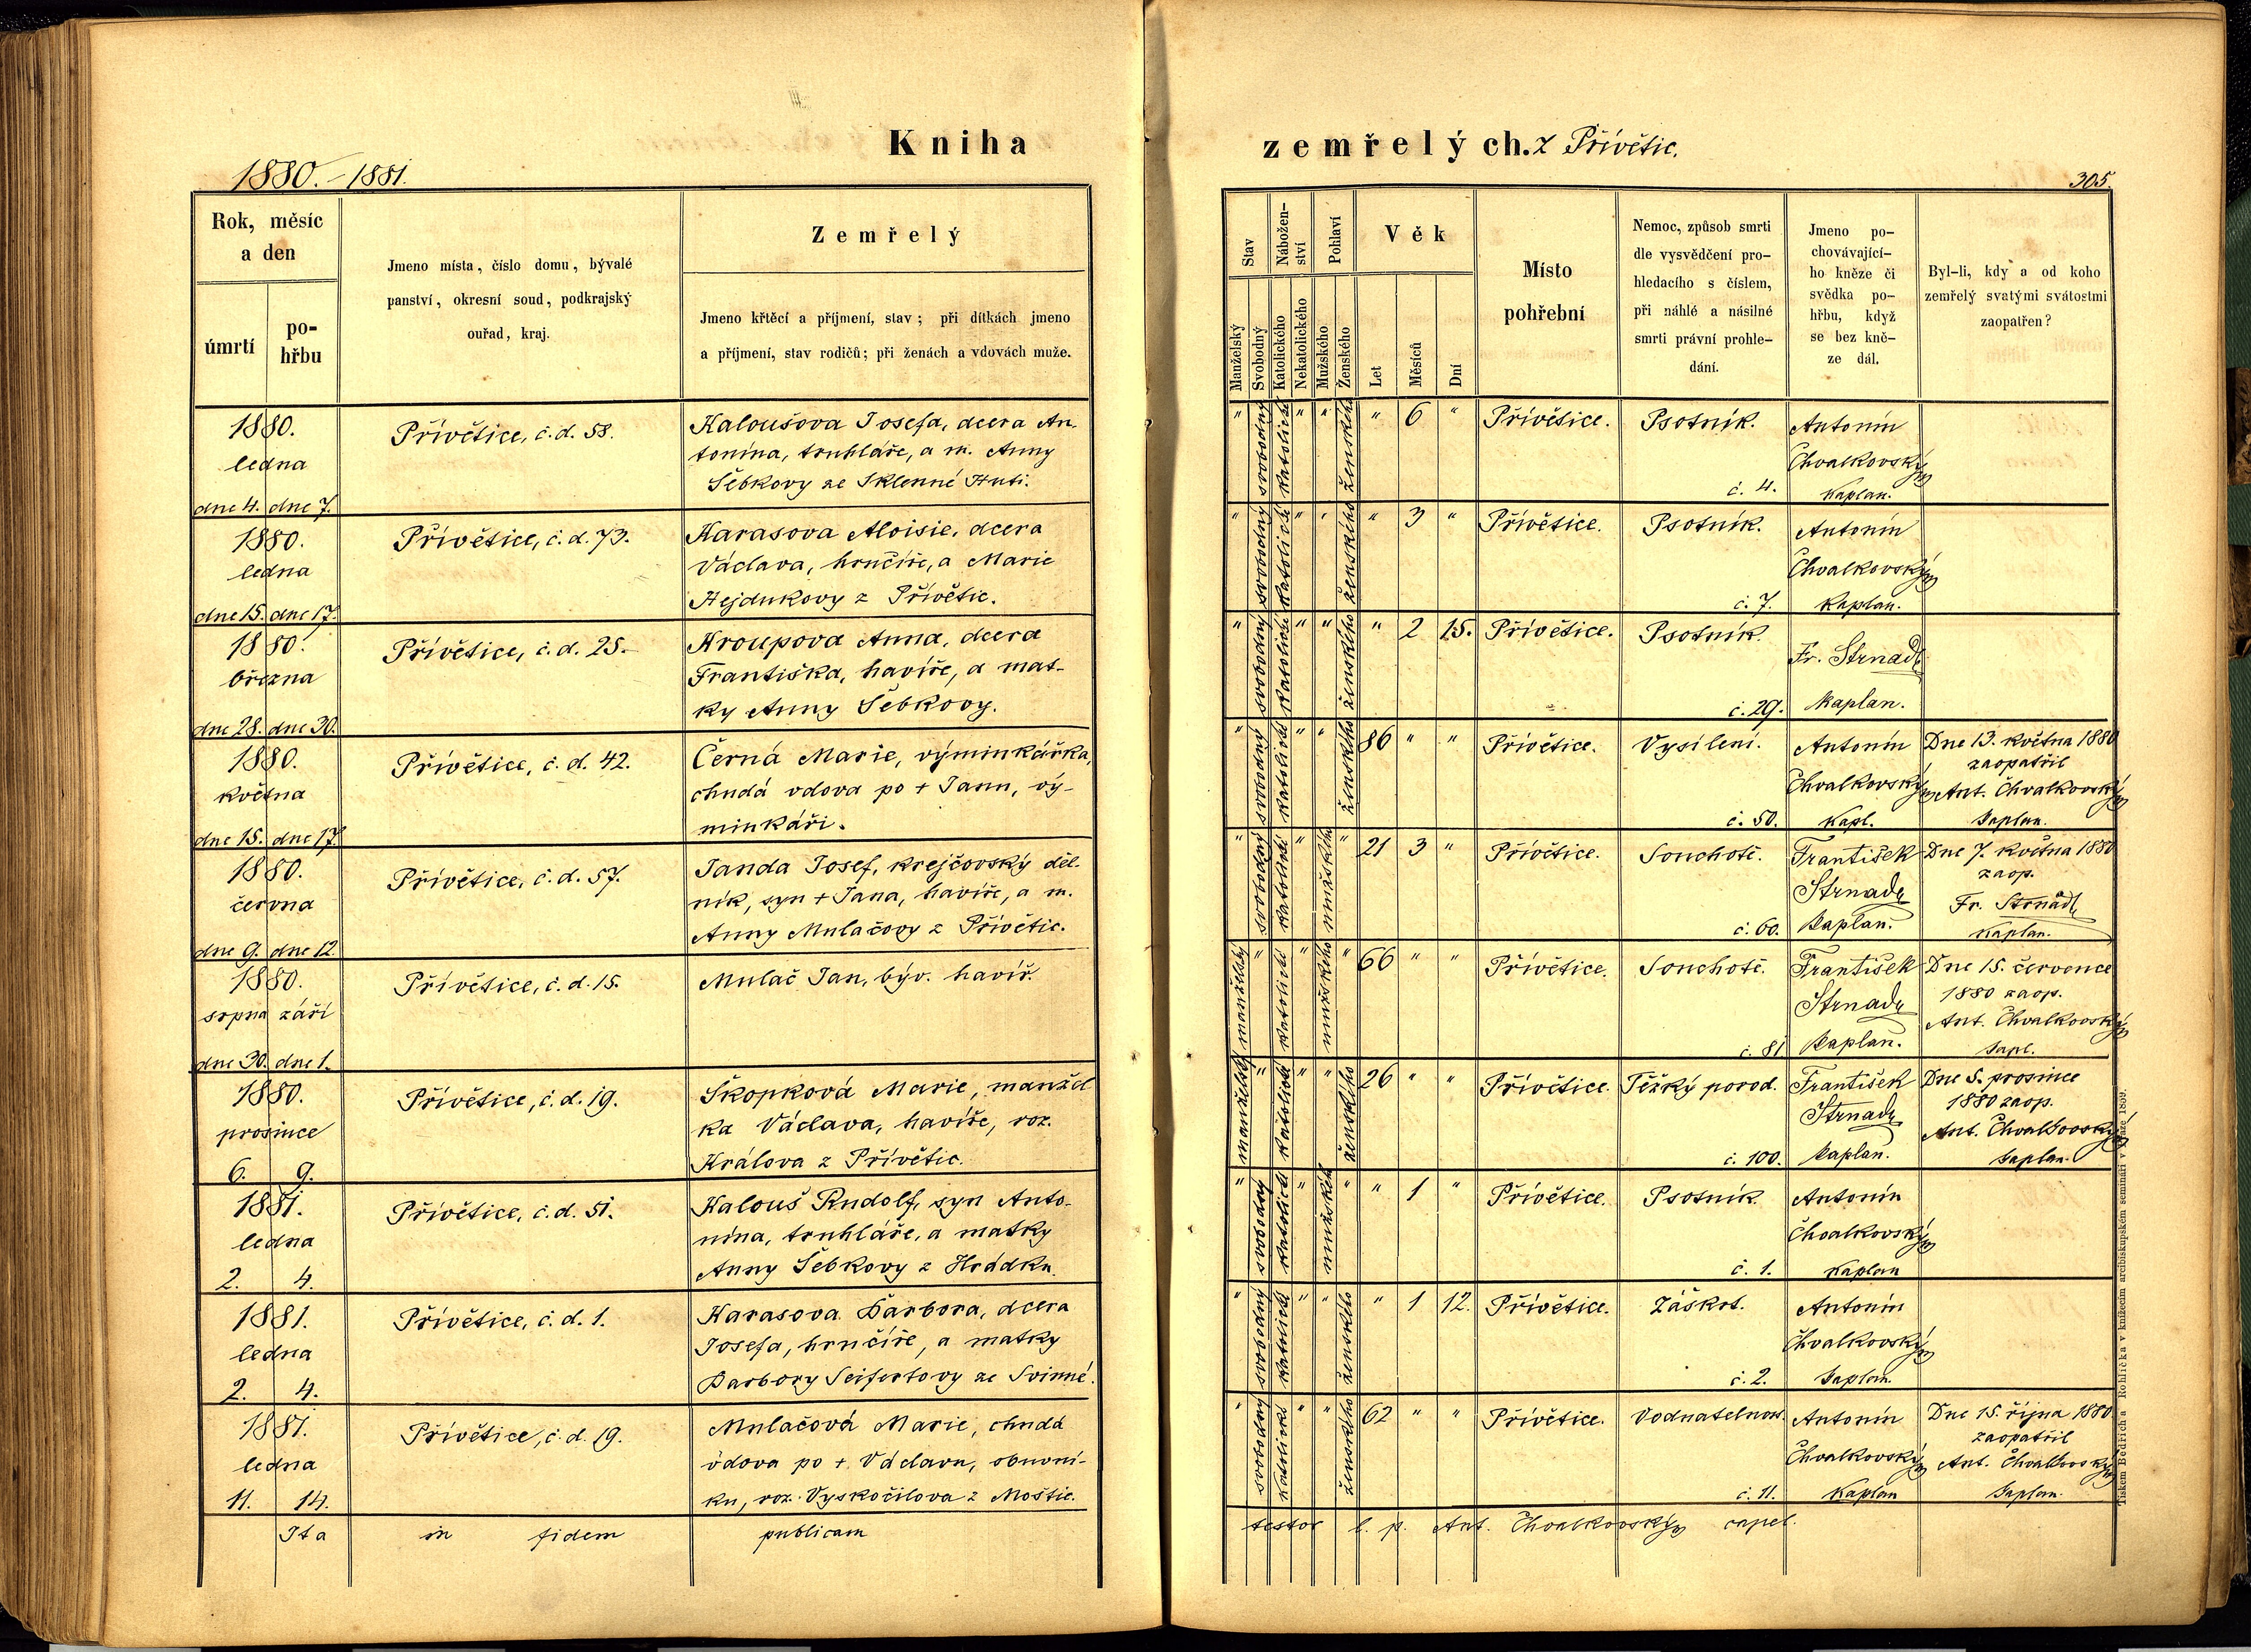 Kniha
zemřelých. z Přívětic.
1880. – 1881.
305.
Rok, měsíc
a den
úmrtí
po-
hřbu
Jmeno místa, číslo domu, bývalé
panství, okresní soud, podkrajský
ouřad, kraj.
Zemřelý
Jmeno křtěcí a příjmení, stav; při dítkách jmeno
a příjmení, stav rodičů; při ženách a vdovách muže.
Stav
Manželský
Svobodný
Nábožen-
ství
Katolického
Nekatolického
Pohlaví
Mužského
Ženského
Věk
Let
Měsíců
Dní
Místo
pohřební
Nemoc, způsob smrti
dle vysvědčení pro-
hledacího s číslem,
při náhlé a násilné
smrti právní prohle-
dání.
Jmeno po-
chovávající-
ho kněze či
svědka po-
hřbu, když
se bez kně-
ze dál.
Byl-li, kdy a od koho
zemřelý svatými svátostmi
zaopatřen?
1880.
ledna
dne 4. dne 7.
Přívětice, č. d. 58.
Kaloušova Josefa, dcera An-
tonína, truhláře, a m. Anny
Šebkovy ze Sklenné Huti.
" svobodný katolické " " ženského " 6 "
Přívětice.
Psotník.
č. 4.
Antonín
Chvalkovský
Kaplan.
1880.
ledna
dne 15. dne 17.
Přívětice, č. d. 73.
Karasova Aloisie, dcera
Václava, hrnčíře, a Marie
Hejdukovy z Přívětic.
" svobodný katolické " " ženského " 3 "
Přívětice.
Psotník.
č. 7.
Antonín
Chvalkovský
Kaplan.
1880.
března
dne 28. dne 30.
Přívětice, č. d. 25.
Kroupova Anna, dcera
Františka, havíře, a mat-
ky Anny Šebkovy.
" svobodný katolické " " ženského " 2 15.
Přívětice.
Psotník.
č. 29.
Fr. Strnad
Kaplan.
1880.
května
dne 15. dne 17.
Přívětice, č. d. 42.
Černá Marie, výminkářka,
chudá vdova po + Janu, vý-
minkáři.
" svobodný katolické " " ženského 86 " "
Přívětice.
Vysílení.
č. 50.
Antonín
Chvalkovský
Kapl.
Dne 13. května 1880
zaopatřil
Ant. Chvalkovský
Kaplan.
1880.
června
dne 9. dne 12.
Přívětice, č. d. 57.
Janda Josef, krejčovský děl-
ník, syn + Jana, havíře, a m.
Anny Mulačovy z Přívětic.
" svobodný katolické " mužského " 21 3 "
Přívětice.
Souchotě.
č. 60.
František
Strnad
Kaplan.
Dne 7. května 1880
zaop.
Fr. Strnad
Kaplan.
1880.
srpna září
dne 30. dne 1.
Přívětice, č. d. 15.
Mulač Jan, býv. havíř.
manželský " katolické " mužského " 66 " "
Přívětice.
Souchotě.
č. 81
František
Strnad
Kaplan.
Dne 15. července
1880 zaop.
Ant. Chvalkovský
Kapl.
1880.
prosince
6. 9.
Přívětice, č. d. 19.
Škopková Marie, manžel-
ka Václava, havíře, roz.
Králova z Přívětic.
manželský " katolické " " ženského 26 " "
Přívětice.
Těžký porod.
č. 100.
František
Strnad
Kaplan.
Dne 5. prosince
1880 zaop.
Ant. Chvalkovský
Kaplan.
1881.
ledna
2. 4.
Přívětice, č. d. 51.
Kalouš Rudolf, syn Anto-
nína, truhláře, a matky
Anny Šebkovy z Hrádku.
" svobodný katolické " mužského " " 1 "
Přívětice.
Psotník.
č. 1.
Antonín
Chvalkovský
Kaplan
1881.
ledna
2. 4.
Přívětice, č. d. 1.
Karasova Barbora, dcera
Josefa, hrnčíře, a matky
Barbory Seifertovy ze Svinné.
" svobodný katolické " " ženského " 1 12.
Přívětice.
Záškrt.
č. 2.
Antonín
Chvalkovský
Kaplan.
1881.
ledna
11. 14.
Přívětice, č. d. 19.
Mulačová Marie, chudá
vdova po + Václavu, obuvní-
ku, roz. Vyskočilova z Moštic.
" svobodný katolické " " ženského 62 " "
Přívětice.
Vodnatelnost.
č. 11.
Antonín
Chvalkovský
Kaplan
Dne 15. října 1880
zaopatřil
Ant. Chvalkovský
Kaplan.
Ita in fidem publicam testor l. p. Ant. Chvalkovský capel.
Tiskem Bedřicha Rohlíčka v knížecím arcibiskupském semináři v Praze 1859.